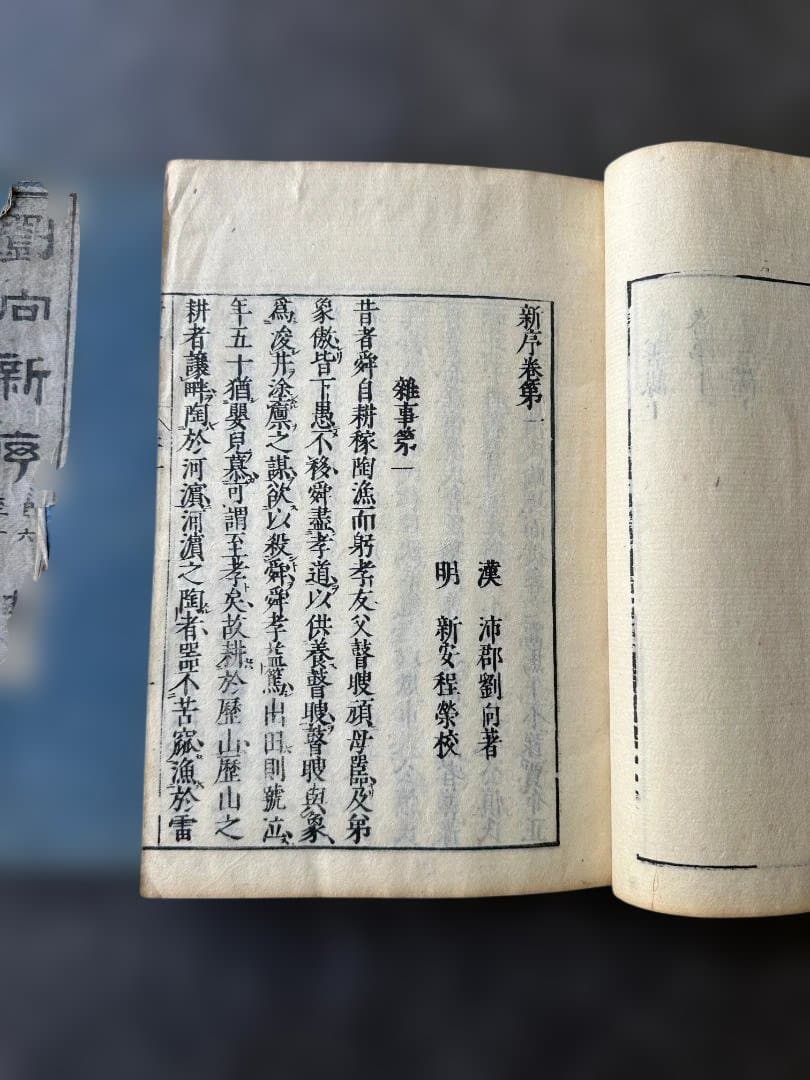 新序卷第一
漢 沛郡劉向著
明 新安程榮校
雜事第一
昔者舜自耕稼陶漁而躬孝友父瞽瞍頑母嚚及弟
象傲皆下愚不移舜盡孝道以供養瞽瞍瞽瞍與象
爲浚井塗廪之謀欲以殺舜舜孝益篤出田則號泣
年五十猶嬰兒慕可謂至孝矣故耕於歷山歷山之
耕者讓畔陶於河濱河濱之陶者器不苦窳漁於雷
劉向新序